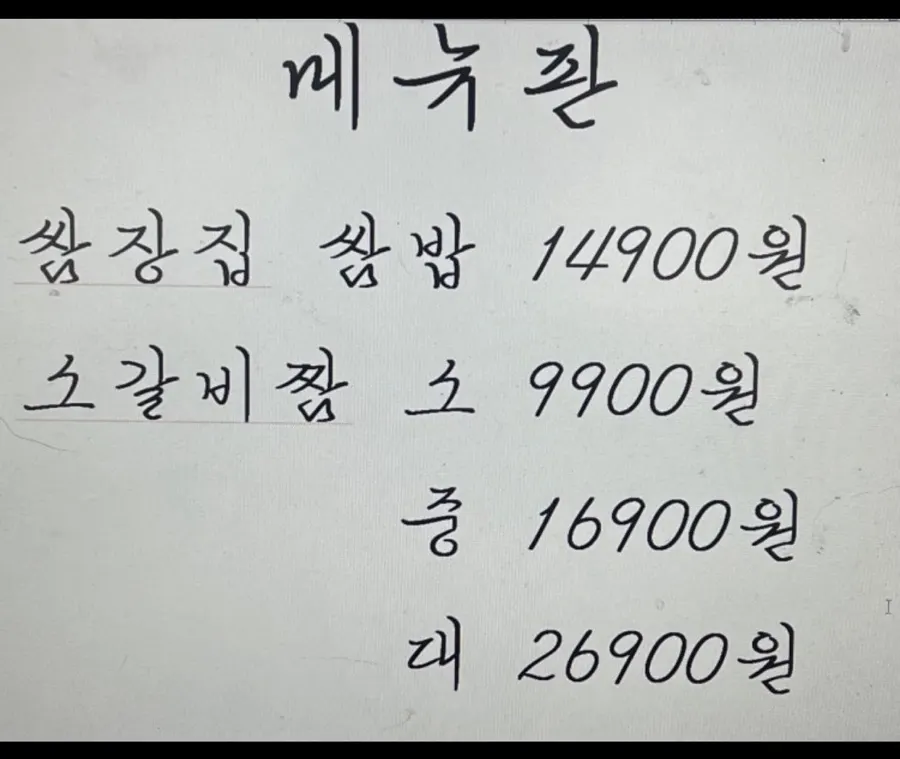 메뉴판
쌈장집 쌈밥 14900원
소갈비찜 소 9900원
중 16900원
대 26900원